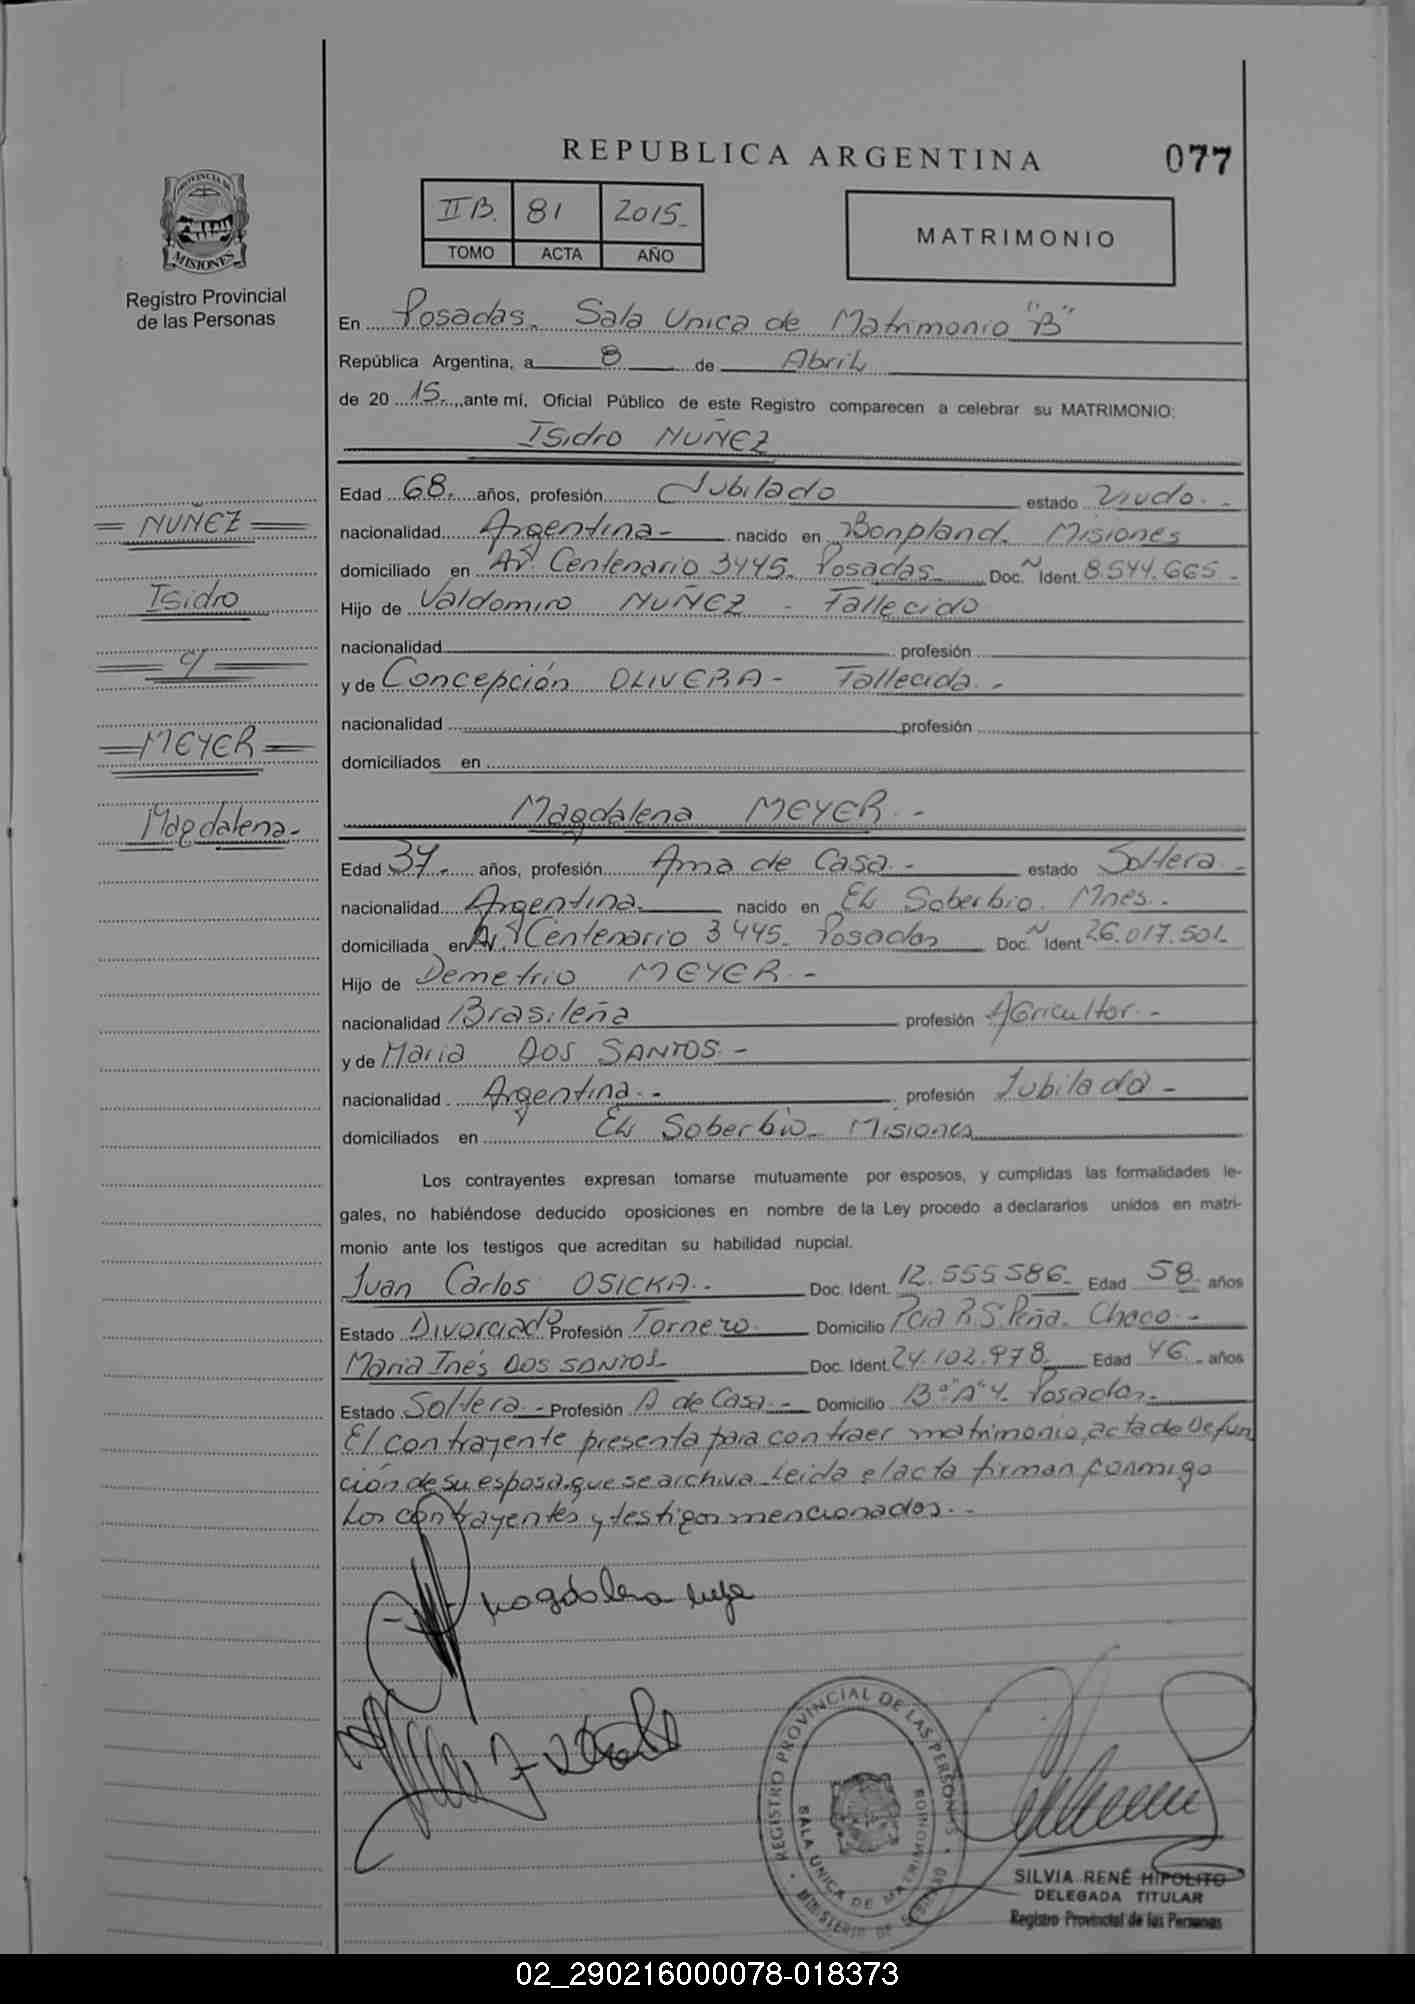 REPUBLICA ARGENTINA
077
PROVINCIA DE
MISIONES
Registro Provincial
de las Personas
II B. 81 2015-
TOMO ACTA AÑO
MATRIMONIO
En Posadas. Sala Unica de Matrimonio "B"
República Argentina, a 8 de Abril
de 2015., ante mí, Oficial Público de este Registro comparecen a celebrar su MATRIMONIO:
Isidro NUÑEZ
Edad 68. años, profesión Jubilado estado Viudo.-
nacionalidad Argentina- nacido en Bonpland. Misiones
domiciliado en Av. Centenario 3445. Posadas- Doc. Ident. 8.544.665-
Hijo de Valdomiro NUÑEZ - Fallecido
nacionalidad profesión
y de Concepción OLIVERA- Fallecida.-
nacionalidad profesión
domiciliados en
NUÑEZ
Isidro
c/
MEYER
Magdalena-
Magdalena MEYER.-
Edad 37. años, profesión Ama de Casa.- estado Soltera.-
nacionalidad Argentina. nacido en El Soberbio. Mnes.
domiciliada en Av. Centenario 3445- Posadas Doc. Ident. 26.017.501-
Hijo de Demetrio MEYER.-
nacionalidad Brasileña profesión Agricultor.-
y de Maria DOS SANTOS.-
nacionalidad Argentina.- profesión Jubilada-
domiciliados en El Soberbio- Misiones
Los contrayentes expresan tomarse mutuamente por esposos, y cumplidas las formalidades le-
gales, no habiéndose deducido oposiciones en nombre de la Ley procedo a declararlos unidos en matri-
monio ante los testigos que acreditan su habilidad nupcial.
Juan Carlos OSICKA.- Doc. Ident. 12.555.586- Edad 58. años
Estado Divorciado Profesión Tornero. Domicilio Pcia R.S. Peña. Chaco.-
Maria Inés DOS SANTOS- Doc. Ident. 24.102.978. Edad 46. años
Estado Soltera.- Profesión A de Casa.- Domicilio B° "A" 4. Posadas.-
El contrayente presenta para contraer matrimonio, acta de Defun
ción de su esposa. que se archiva. Leida el acta firman conmigo
los contrayentes y testigos mencionados.-
Magdalena
REGISTRO PROVINCIAL DE LAS PERSONAS
SALA UNICA DE MATRIMONIO
MINISTERIO DE GOBIERNO
SILVIA RENÉ HIPOLITO
DELEGADA TITULAR
Registro Provincial de las Personas
02_290216000078-018373